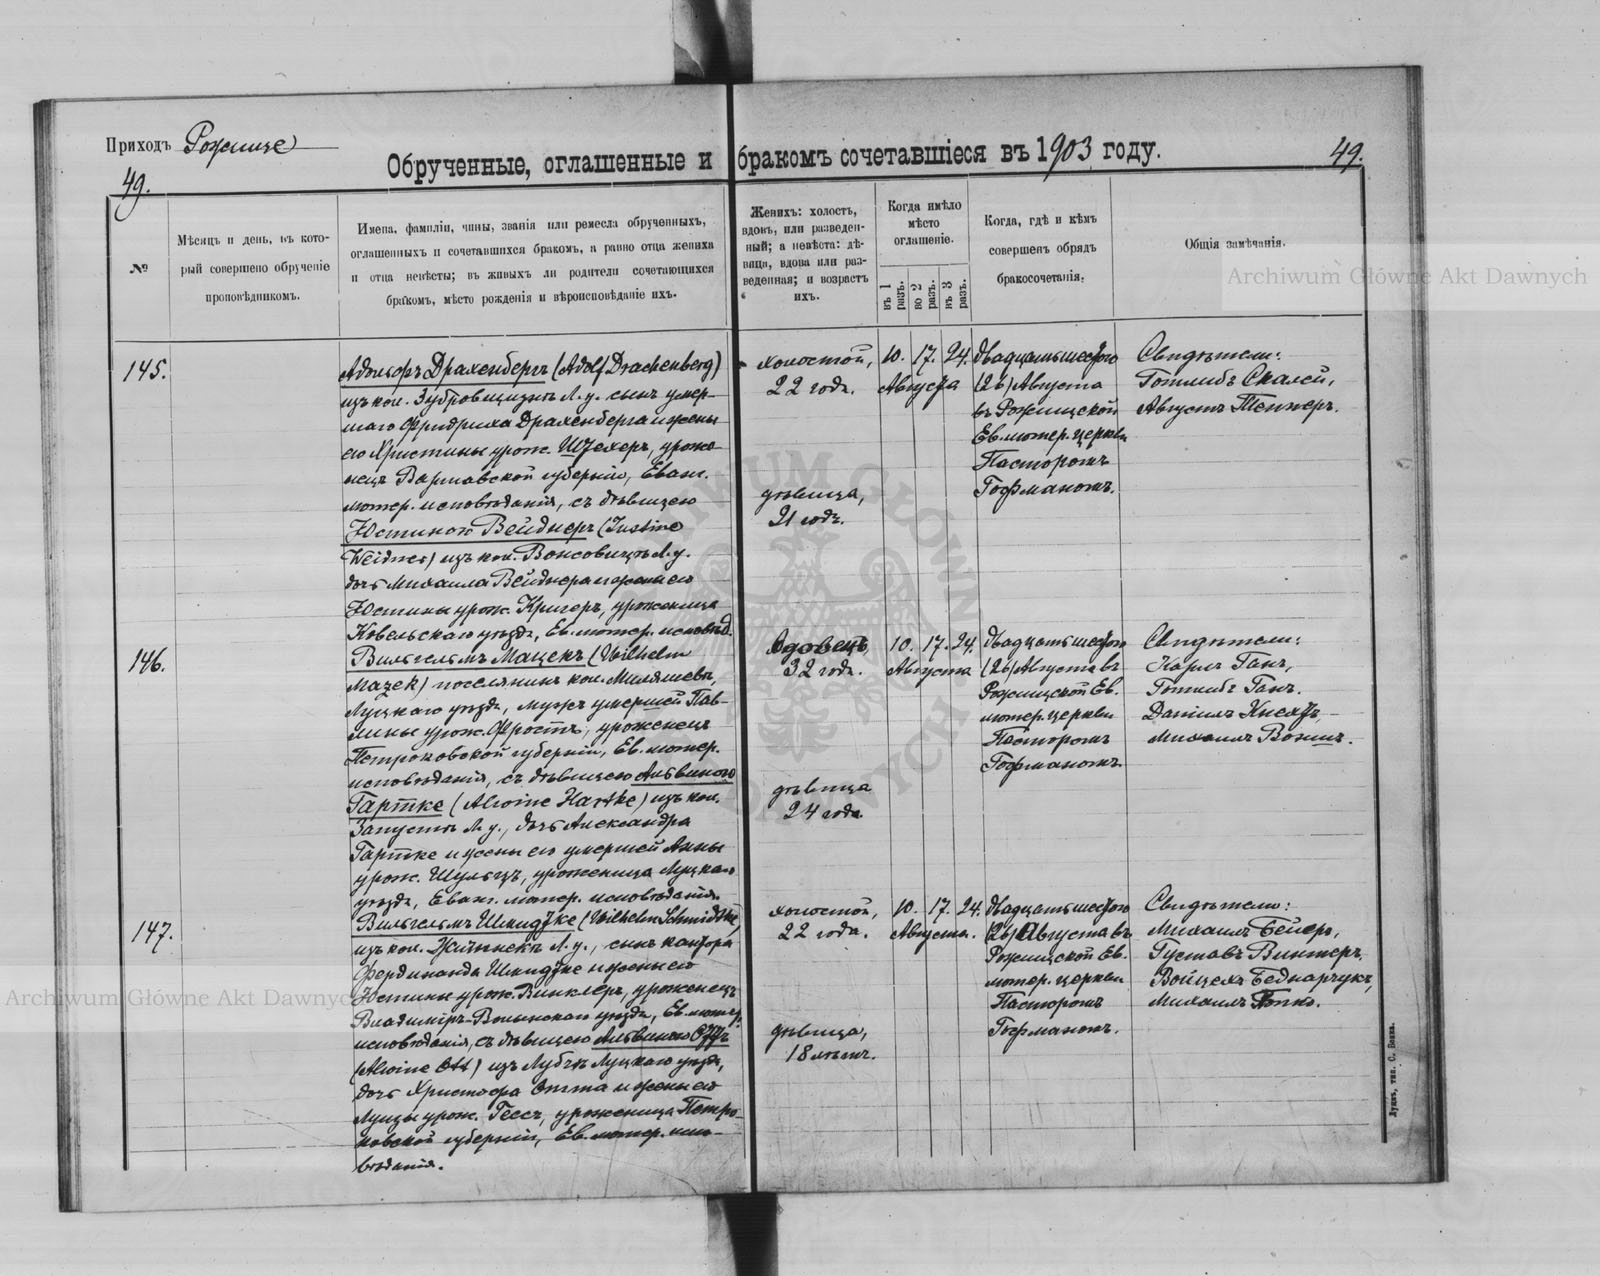 Приходъ Рожище
Обрученные, оглашенные и бракомъ сочетавшіеся въ 1903 году.
49.
49.
№
Мѣсяцъ и день, въ кото-
рый совершено обрученіе
проповѣдникомъ.
Имена, фамиліи, чины, званія или ремесла обрученныхъ,
оглашенныхъ и сочетавшихся бракомъ, а равно отца жениха
и отца невѣсты; въ живыхъ ли родители сочетающихся
бракомъ, мѣсто рожденія и вѣроисповѣданіе ихъ.
Женихъ: холостъ,
вдовъ, или разведен-
ный; а невѣста: дѣ-
вица, вдова или раз-
веденная; и возрастъ
ихъ.
Когда имѣло
мѣсто
оглашеніе.
въ 1 разъ.
во 2 разъ.
въ 3 разъ.
Когда, гдѣ и кѣмъ
совершенъ обрядъ
бракосочетанія.
Общія замѣчанія.
Archiwum Główne Akt Dawnych
145.
Адольфъ Драхенбергъ (Adolf Drachenberg)
изъ кол. Зубровщизнъ Л. у. сынъ умер-
шаго Фридриха Драхенберга и жены
его Христины урож. Штехеръ, уроже-
нецъ Варшавской губерніи, Еванг.
лютер. исповѣданія, съ дѣвицею
Юстиною Вейднеръ (Justine
Weidner) изъ кол. Вонсовичъ Л. у.
дочь Михаила Вейднера и жены его
Юстины урож. Кригеръ, уроженица
Ковельскаго уѣзда, Ев. лютер. исповѣд.
холостой,
22 года.
дѣвица,
21 годъ.
10. 17. 24.
Августа
Двадцать шестого
(26) Августа
въ Рожищской
Ев. лютер. церкви
Пасторомъ
Гофманомъ.
Свидѣтели:
Готлибъ Скалей,
Августъ Теннеръ.
146.
Вильгельмъ Мацекъ (Wilhelm
Mazek) поселянинъ кол. Миляшевъ,
Луцкаго уѣзда, мужъ умершей Пав-
лины урож. Фростъ, уроженецъ
Петроковской губерніи, Ев. лютер.
исповѣданія, съ дѣвицею Альвиною
Гартке (Alwine Hartke) изъ кол.
Запустъ Л. у., дочь Александра
Гартке и жены его умершей Анны
урож. Шульцъ, уроженица Луцкаго
уѣзда, Еванг. лютер. исповѣданія.
Вдовецъ
32 года.
дѣвица
24 года.
10. 17. 24.
Августа
Двадцать шестого
(26) Августа въ
Рожищской Ев.
лютер. церкви
Пасторомъ
Гофманомъ.
Свидѣтели:
Карлъ Ганъ,
Готлибъ Ганъ.
Даніилъ Кнехтъ,
Михаилъ Воншъ.
147.
Вильгельмъ Шмидтке (Wilhelm Schmidtke)
изъ кол. Житынекъ Л. у., сынъ кантора
Фердинанда Шмидтке и жены его
Юстины урож. Винклеръ, уроженецъ
Владиміръ-Волынскаго уѣзда, Ев. лютер.
исповѣданія, съ дѣвицею Альвиною Оттъ
(Alwine Ott) изъ Лубчъ Луцкаго уѣзда,
дочь Христофа Отта и жены его
Луизы урож. Гессъ, уроженица Петро-
ковской губерніи, Ев. лютер. испо-
вѣданія.
холостой,
22 года.
дѣвица,
18 лѣтъ.
10. 17. 24.
Августа.
Двадцать шестого
(26) Августа въ
Рожищской Ев.
лютер. церкви
Пасторомъ
Гофманомъ.
Свидѣтели:
Михаилъ Бейеръ,
Густавъ Винтеръ,
Войцехъ Беднарчукъ,
Михаилъ Попко.
Archiwum Główne Akt Dawnych